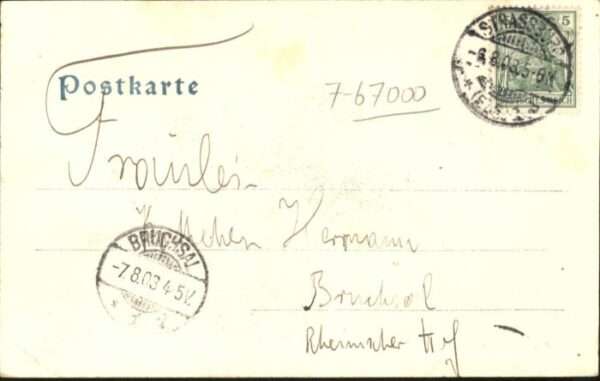 Postkarte
7-67000
STRASSBURG
-6.8.03.5-6N.
5
Fräulein
Käthchen Hermann
Bruchsal
Rheinischer Hof
BRUCHSAL
-7.8.03 4-5V.